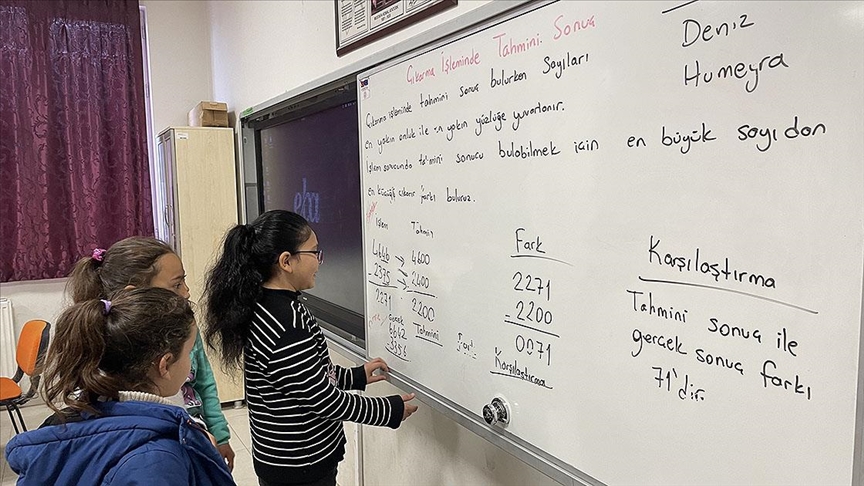 Çıkarma İşleminde Tahmini Sonuç
Deniz
Humeyra
Çıkarma işleminde tahmini sonuç bulurken sayıları
en yakın onluk ile en yakın yüzlüğe yuvarlanır.
İşlem sonucunda tahmini sonucu bulabilmek için en büyük sayıdan
en küçüğü çıkarır farkı buluruz.
eba
İşlem Tahmin
4646 → 4600
- 2375 → 2400
2271 2200
Tahmini
Gerçek
6642
- 3356
Fark
2271
- 2200
0071
Karşılaştırma
Karşılaştırma
Tahmini sonuç ile
gerçek sonuç farkı
71'dir.